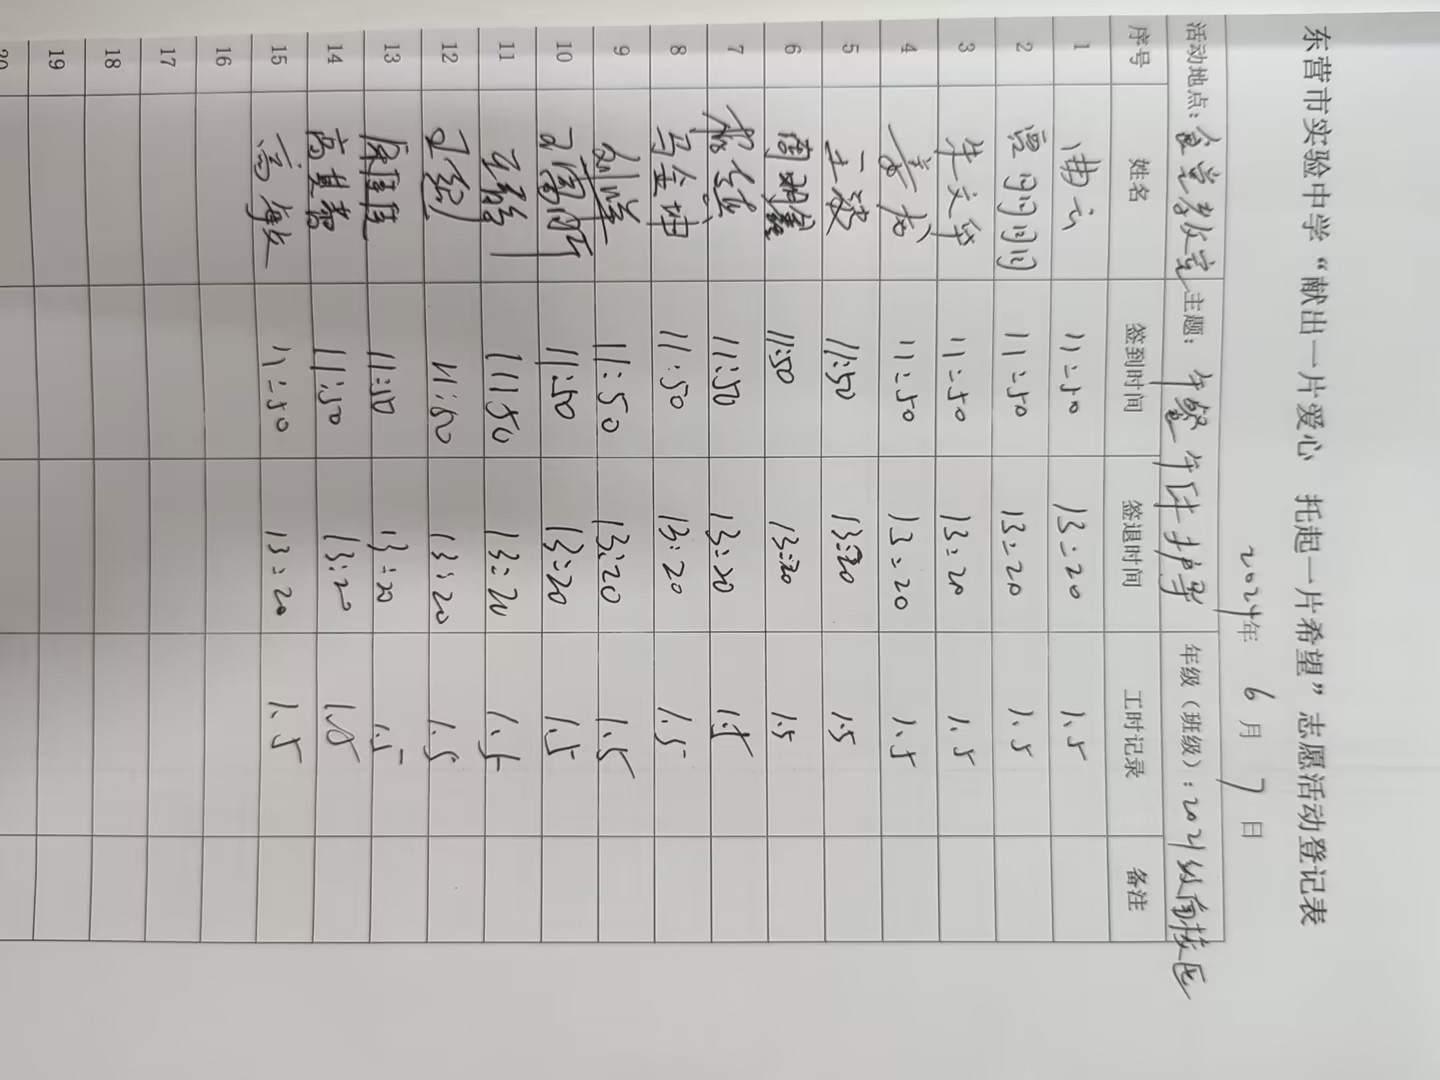 东营市实验中学“献出一片爱心 托起一片希望”志愿活动登记表
2024年 6月 7日
活动地点：食堂教室 主题：午餐午休护导 年级（班级）：2021级南校区
序号 姓名 签到时间 签退时间 工时记录 备注
1 曲云 11:50 13:20 1.5
2 贾闪闪 11:50 13:20 1.5
3 牛文华 11:50 13:20 1.5
4 11:50 13:20 1.5
5 王波 11:50 13:20 1.5
6 周 鑫 11:50 13:20 1.5
7 11:50 13:20 1.5
8 马金坤 11:50 13:20 1.5
9 刘峰 11:50 13:20 1.5
10 11:50 13:20 1.5
11 王 11:50 13:20 1.5
12 王 11:50 13:20 1.5
13 11:50 13:20 1.5
14 高 11:50 13:20 1.5
15 高敏 11:50 13:20 1.5
16
17
18
19
20